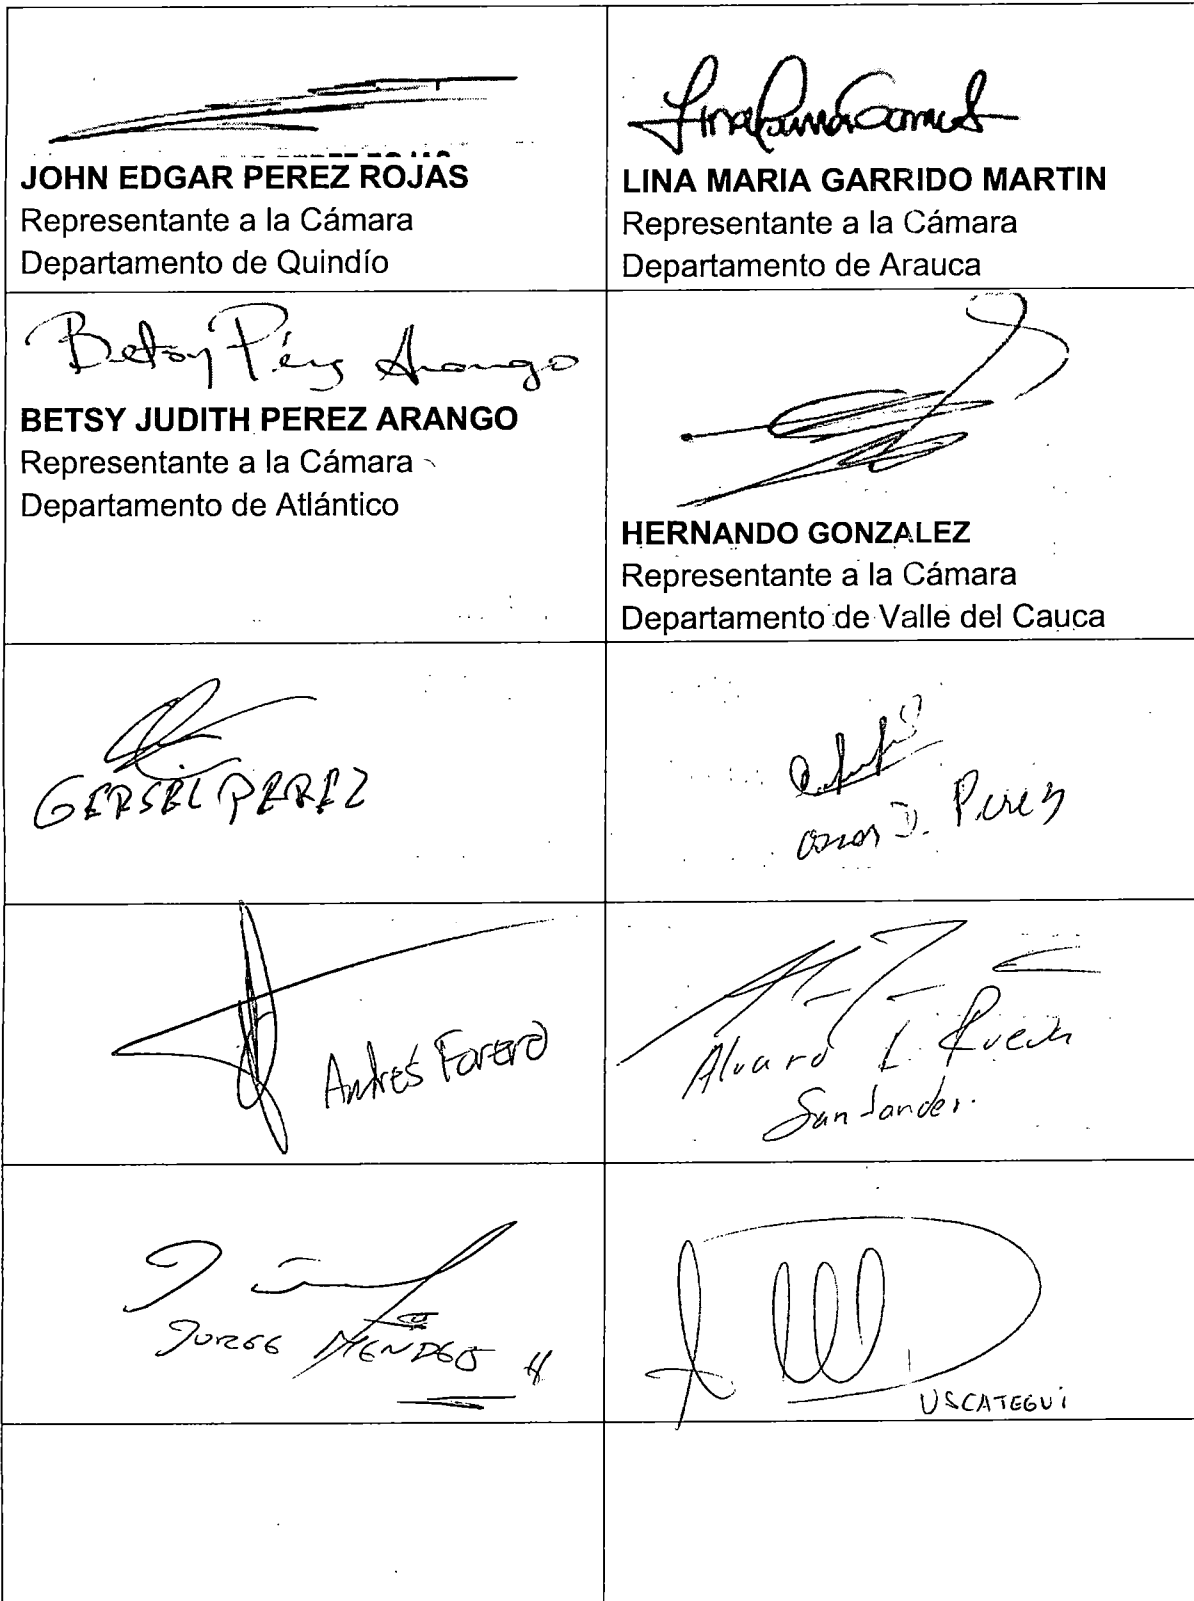 JOHN EDGAR PEREZ ROJAS
Representante a la Cámara
Departamento de Quindío
LINA MARIA GARRIDO MARTIN
Representante a la Cámara
Departamento de Arauca
Betsy Pérez Arango
BETSY JUDITH PEREZ ARANGO
Representante a la Cámara
Departamento de Atlántico
HERNANDO GONZALEZ
Representante a la Cámara
Departamento de Valle del Cauca
GERSEL PEREZ
Oscar D. Perez
Andrés Forero
Alvaro L. Rueda
Santander.
JORGE MENDEZ H
USCATEGUI